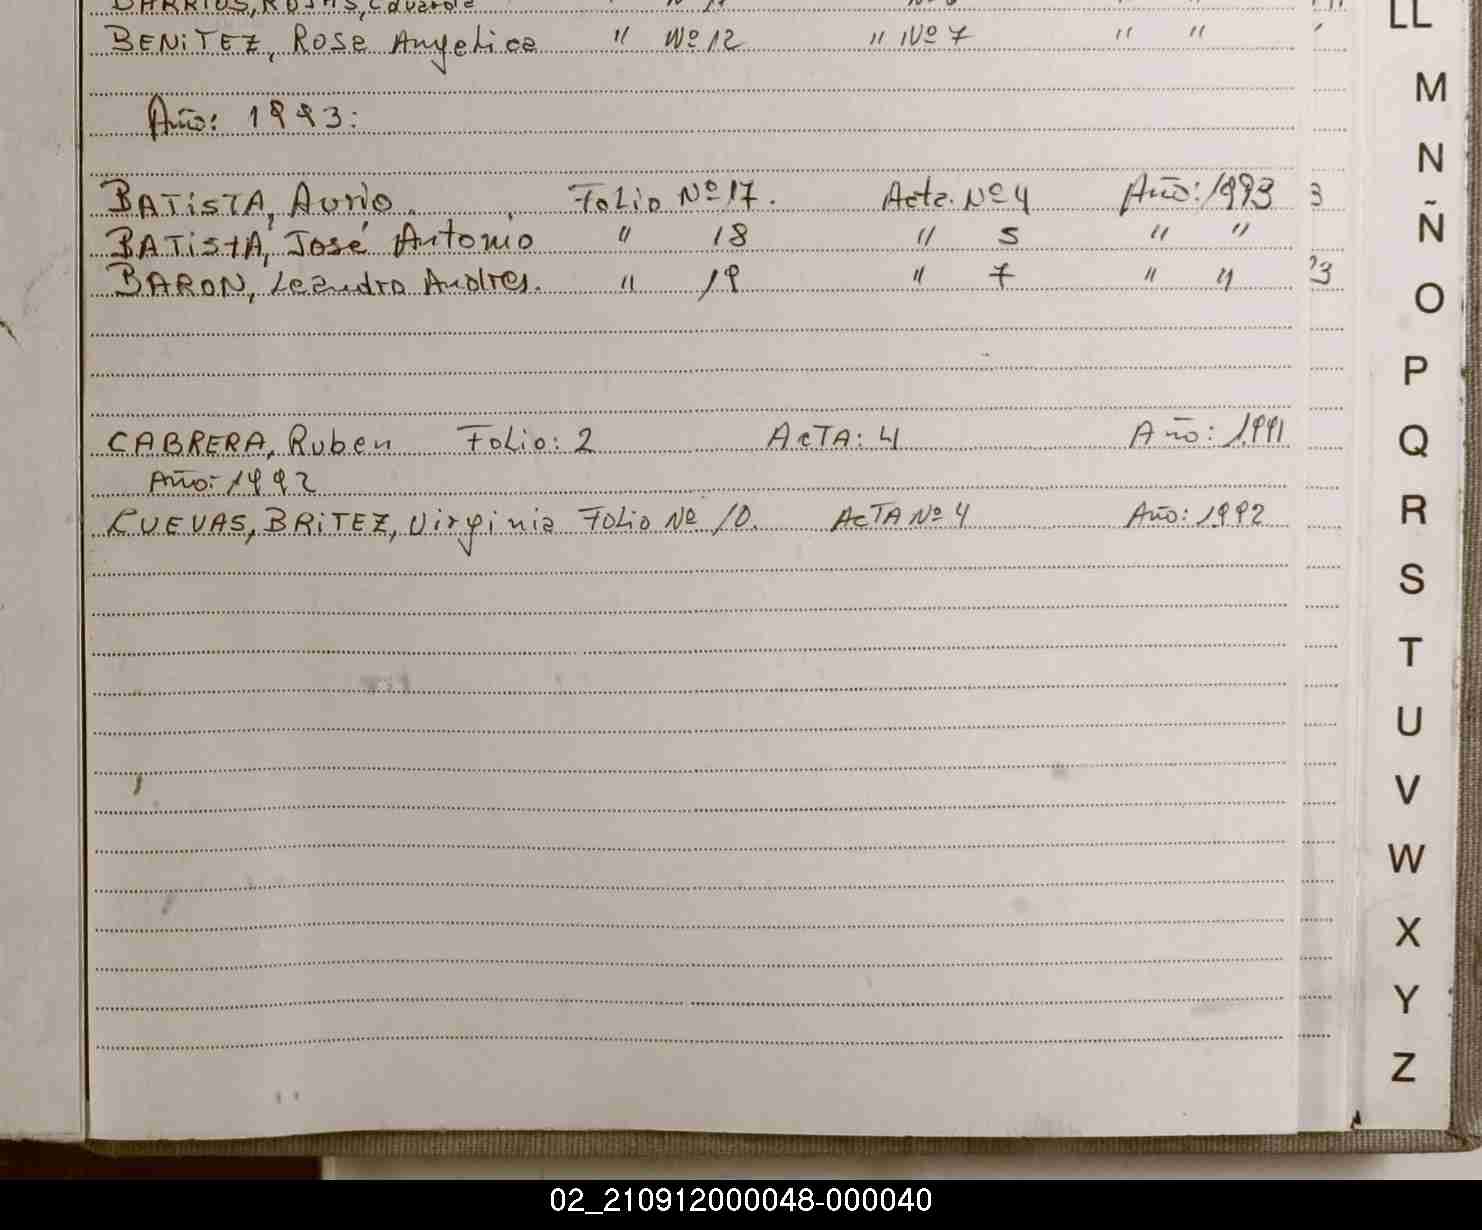 BARRIOS, ROJAS, Eduardo " Nº 11 " "
BENITEZ, Rosa Angelica " Nº 12 " Nº 7 " "
Año: 1993:
BATISTA, Aurio. Folio Nº 17. Acta. Nº 4 Año: 1993 3
BATISTA, José Antonio " 18 " 5 " "
BARON, Leandro Andres. " 19 " 7 " " 3
CABRERA, Ruben Folio: 2 ACTA: 4 Año: 1991
Año: 1992
CUEVAS, BRITEZ, Virginia Folio Nº 10. ACTA Nº 4 Año: 1992
LL
M
N
Ñ
O
P
Q
R
S
T
U
V
W
X
Y
Z
02_210912000048-000040